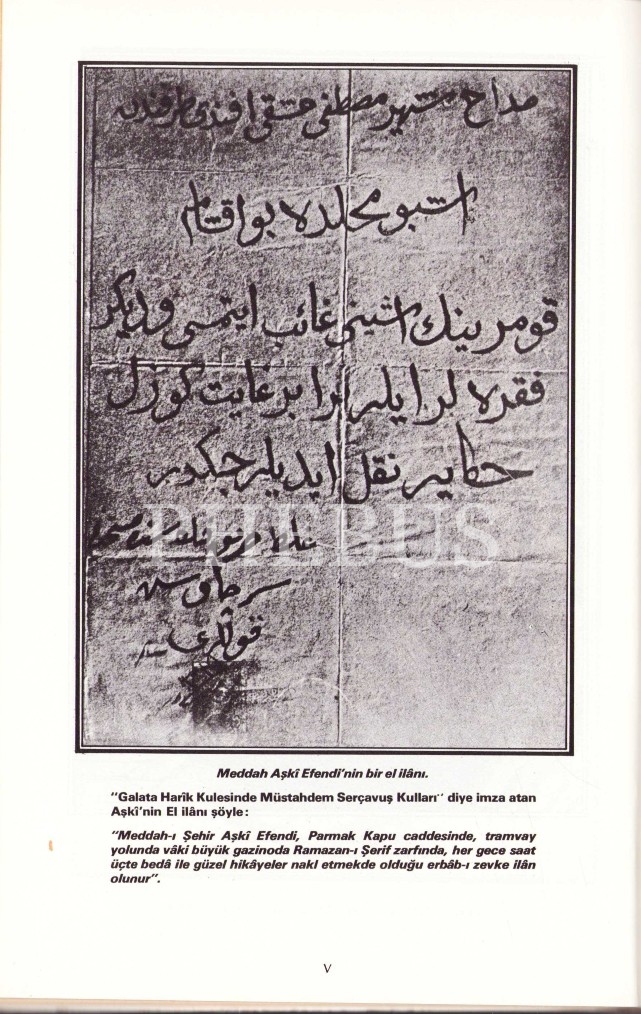 مداح شهير مصطفى عشقى افندى طرفندن
اشبو مجلده بو اقشام
قومرينك اشينى غائب ايتمسى وديكر
فقره لر ايله برابر غايت كوزل
حكايه نقل ايديله جكدر
قوللرى
PHEBUS
Meddah Aşkî Efendi'nin bir el ilânı.
"Galata Harîk Kulesinde Müstahdem Serçavuş Kulları" diye imza atan
Aşkî'nin El ilânı şöyle:
"Meddah-ı Şehir Aşkî Efendi, Parmak Kapu caddesinde, tramvay
yolunda vâki büyük gazinoda Ramazan-ı Şerif zarfında, her gece saat
üçte bedâ ile güzel hikâyeler nakl etmekde olduğu erbâb-ı zevke ilân
olunur".
V